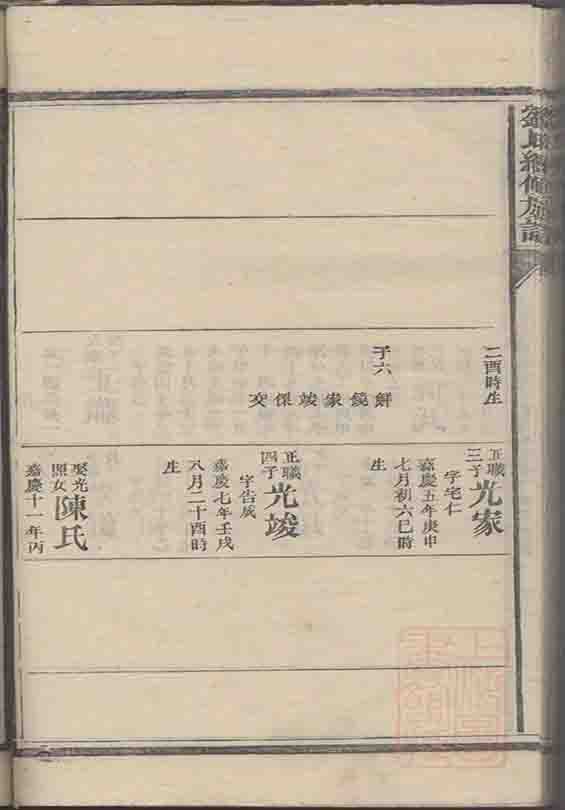 劉氏續修族譜
二酉時生
子六
鮮鐃家竣保交
正職三子光家
字宅仁
嘉慶五年庚申
七月初六巳時
生
正職四子光竣
字告成
嘉慶七年壬戌
八月二十酉時
生
娶光照女陳氏
嘉慶十一年丙